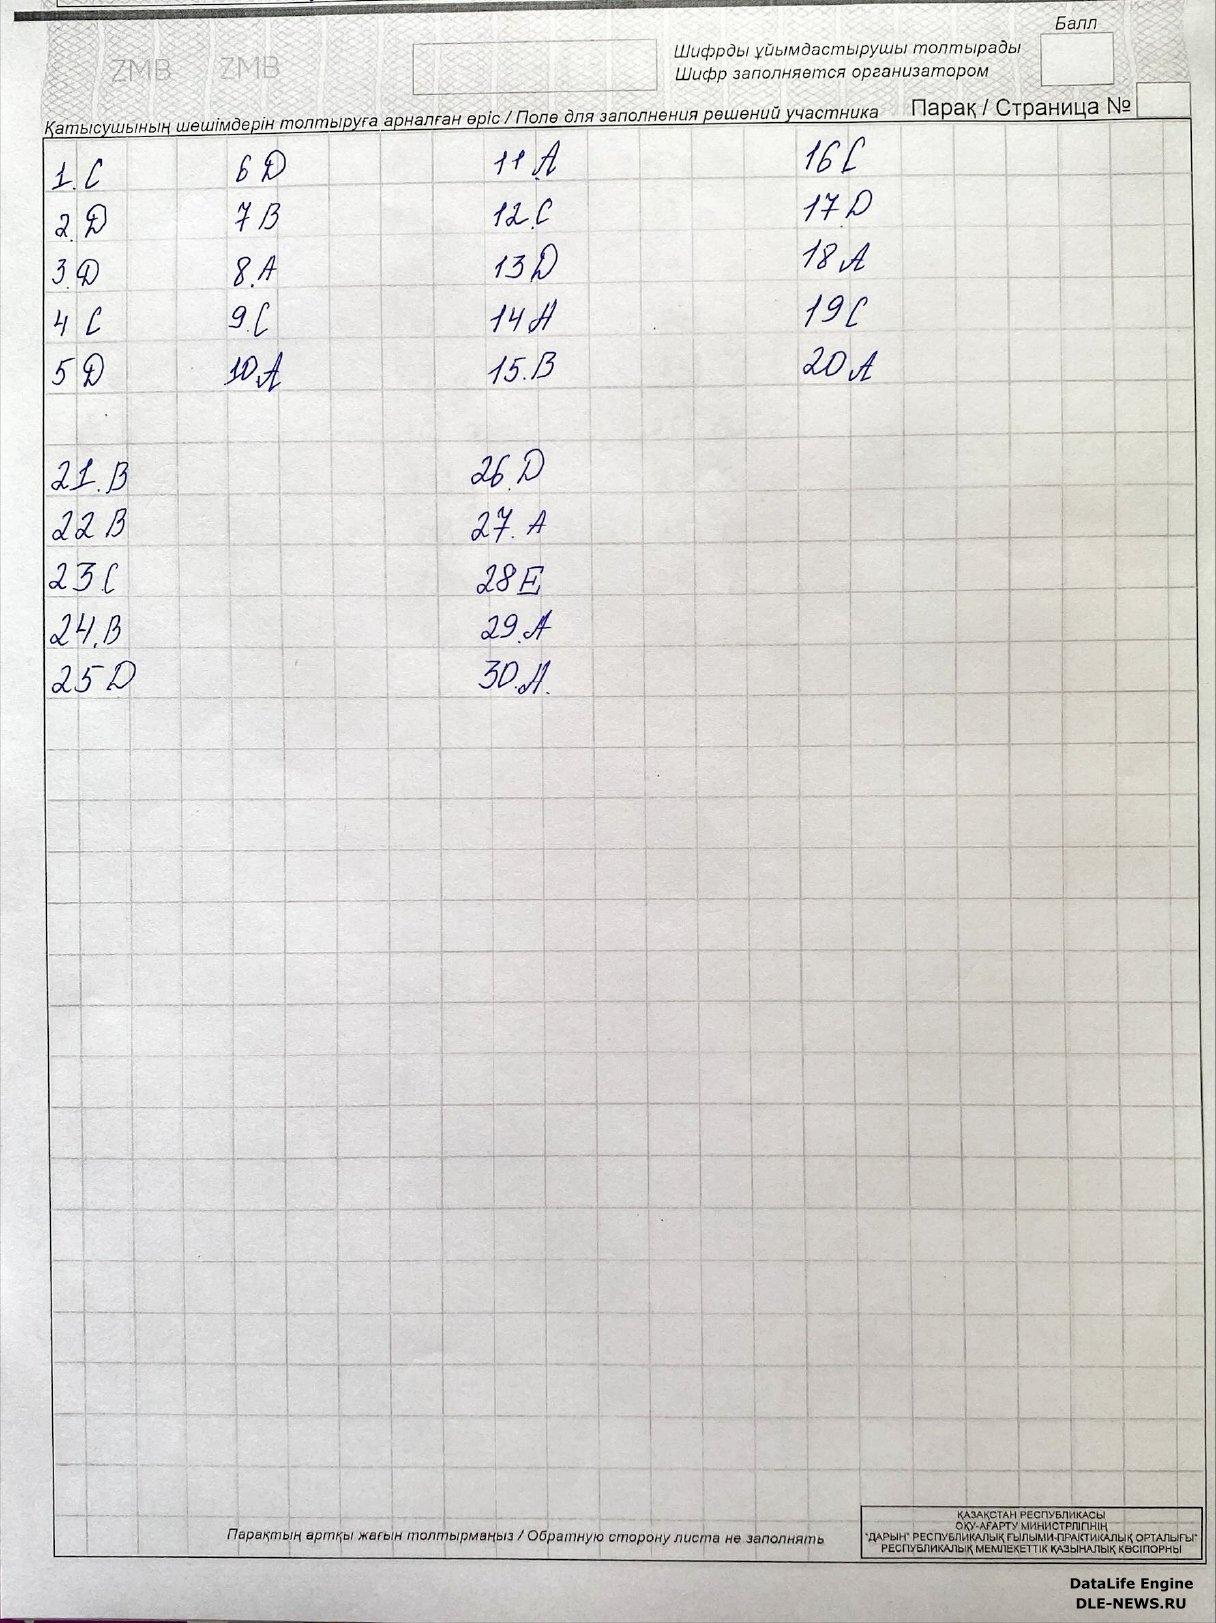 Балл
ZMB ZMB
Шифрды ұйымдастырушы толтырады
Шифр заполняется организатором
Қатысушының шешімдерін толтыруға арналған өріс / Поле для заполнения решений участника
Парақ / Страница №
1. C 6 D 11 A 16 C
2. D 7 B 12. C 17 D
3. D 8. A 13 D 18 A
4 C 9. C 14 A 19 C
5 D 10. A 15. B 20 A
21. B 26. D
22 B 27. A
23 C 28 E
24. B 29. A
25 D 30. A.
Парақтың артқы жағын толтырмаңыз / Обратную сторону листа не заполнять
ҚАЗАҚСТАН РЕСПУБЛИКАСЫ
ОҚУ-АҒАРТУ МИНИСТРЛІГІНІҢ
"ДАРЫН" РЕСПУБЛИКАЛЫҚ ҒЫЛЫМИ-ПРАКТИКАЛЫҚ ОРТАЛЫҒЫ"
РЕСПУБЛИКАЛЫҚ МЕМЛЕКЕТТІК ҚАЗЫНАЛЫҚ КӘСІПОРНЫ
DataLife Engine
DLE-NEWS.RU